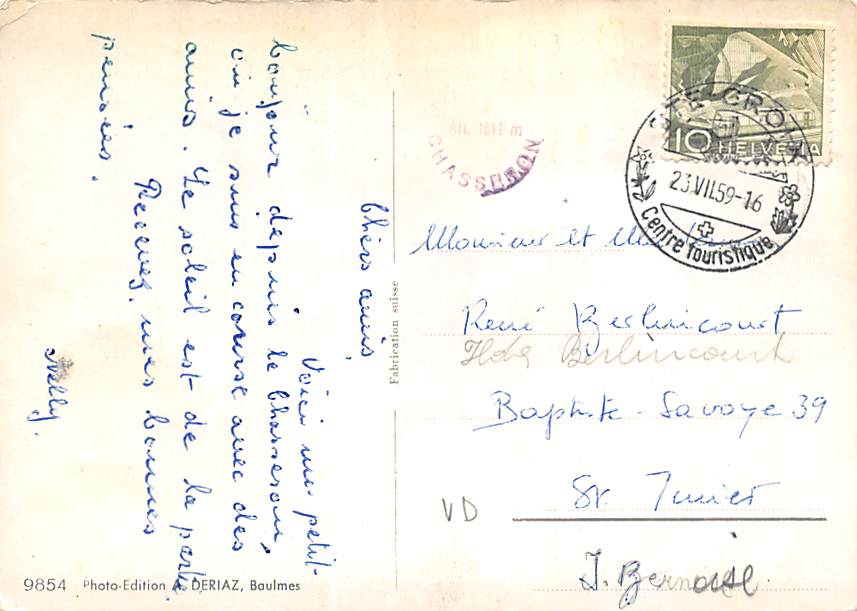 Chers amis,
Voici un petit
bonjour depuis le Chasseron,
où je suis en course avec des
amis. Le soleil est de la partie.
Recevez, mes bonnes
pensées.
Nelly.
9854 Photo-Edition A. DERIAZ, Baulmes
Fabrication suisse
Alt. 1611 m
CHASSERON
10 HELVETIA
STE CROIX
23.VII.59-16
Centre touristique
Monsieur et Madame
René Berlincourt
Ilda Berlincourt
Baptiste-Savoye 39
St. Imier
VD
J. Bernois